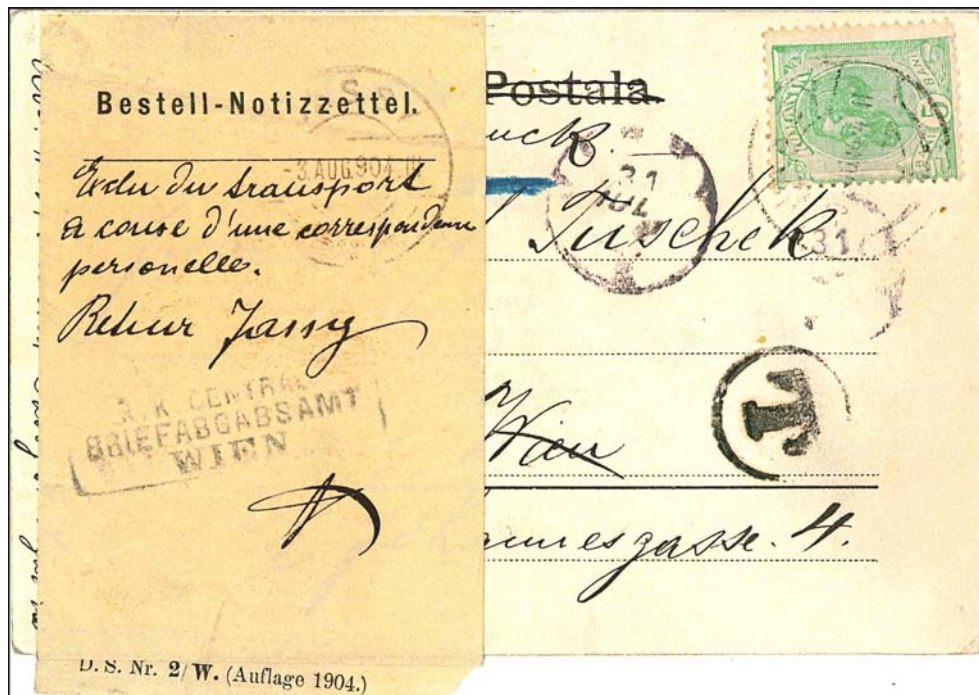 Bestell-Notizzettel.
-3.AUG.904
Exclu du transport
a couse d'une correspondenc
personelle.
Retour Jassy
K.K. CENTRAL
BRIEFABGABSAMT
WIEN
D. S. Nr. 2/W. (Auflage 1904.)
Postala
uck.
Tuschek
Wien
annesgasse. 4.
31
IUL
31
T
5 BANI 5
ROMANIA